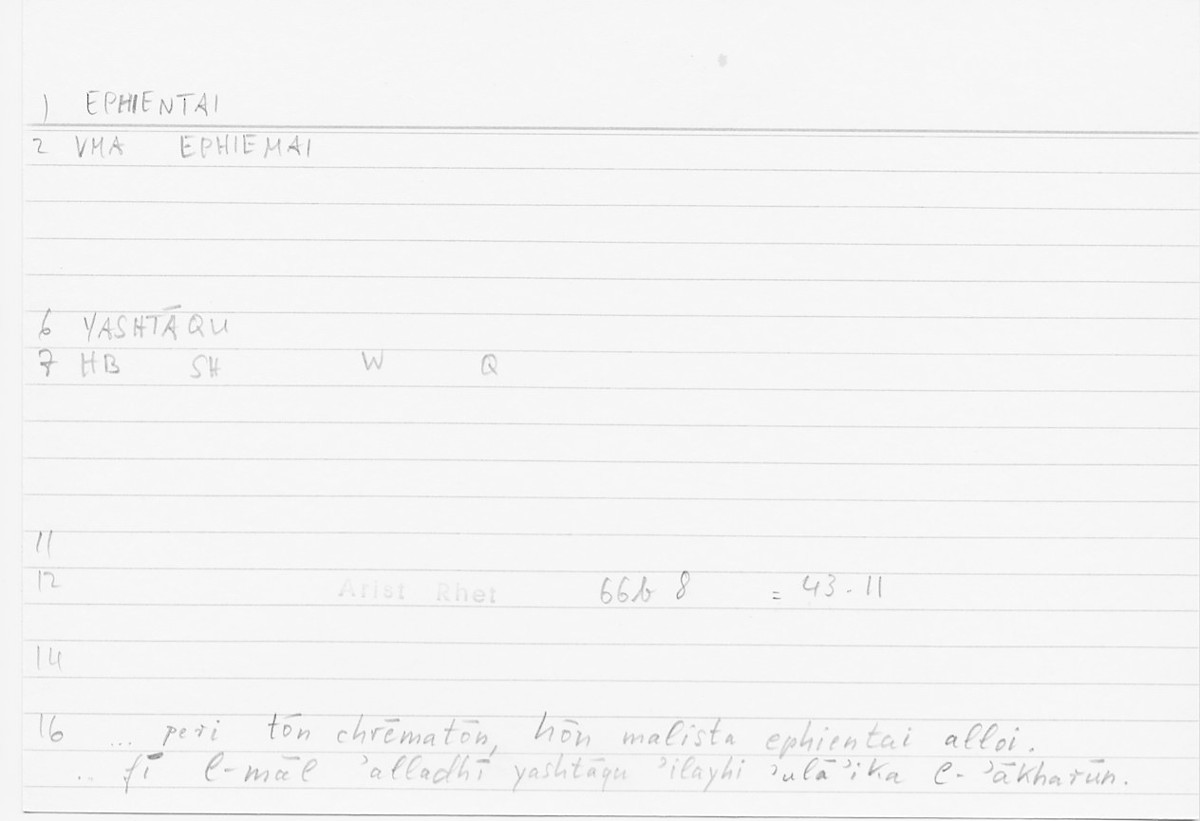 1) EPHIENTAI
2 VMA EPHIEMAI
6 YASHTĀQU
7 HB SH W Q
11
12 Arist Rhet 66b 8 = 43.11
14
16 ... peri tōn chrēmatōn, hōn malista ephientai alloi.
.. fī l-māl ʾalladhī yashtāqu ʾilayhi ʾulāʾika l-ʾākharūn.